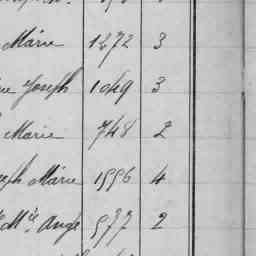 Marie 1272 3
Joseph 1049 3
Marie 748 2
eph Marie 1996 4
Mie Ange 977 2